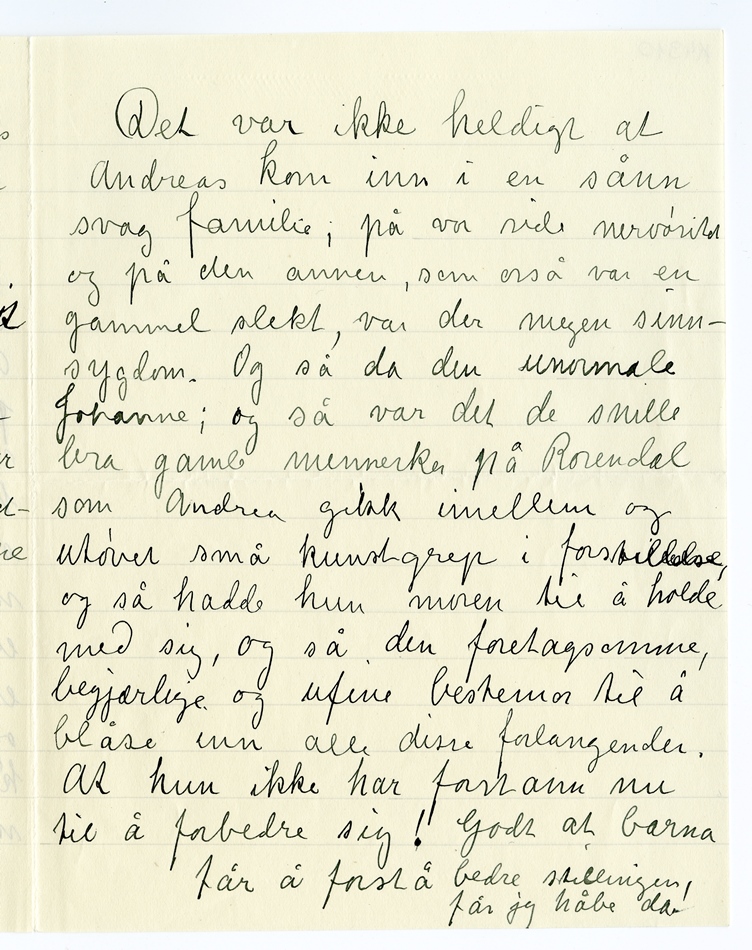 Det var ikke heldigt at
Andreas kom inn i en sånn
svag familie; på vor side nervøsitet
og på den annen, som også var en
gammel slekt, var der megen sinn-
sygdom. Og så da den unormale
Johanne; og så var det de snille
bra gamle mennesker på Rosendal
som Andrea gikk imellem og
utøvet små kunstgrep i forstillelse,
og så hadde hun moren til å holde
med sig, og så den foretagsomme,
begjærlige og ufine bestemor til å
blåse inn alle disse forlangender.
At hun ikke har forstann nu
til å forbedre sig! Godt at barna
får å forstå bedre stillingen,
får jeg håbe da